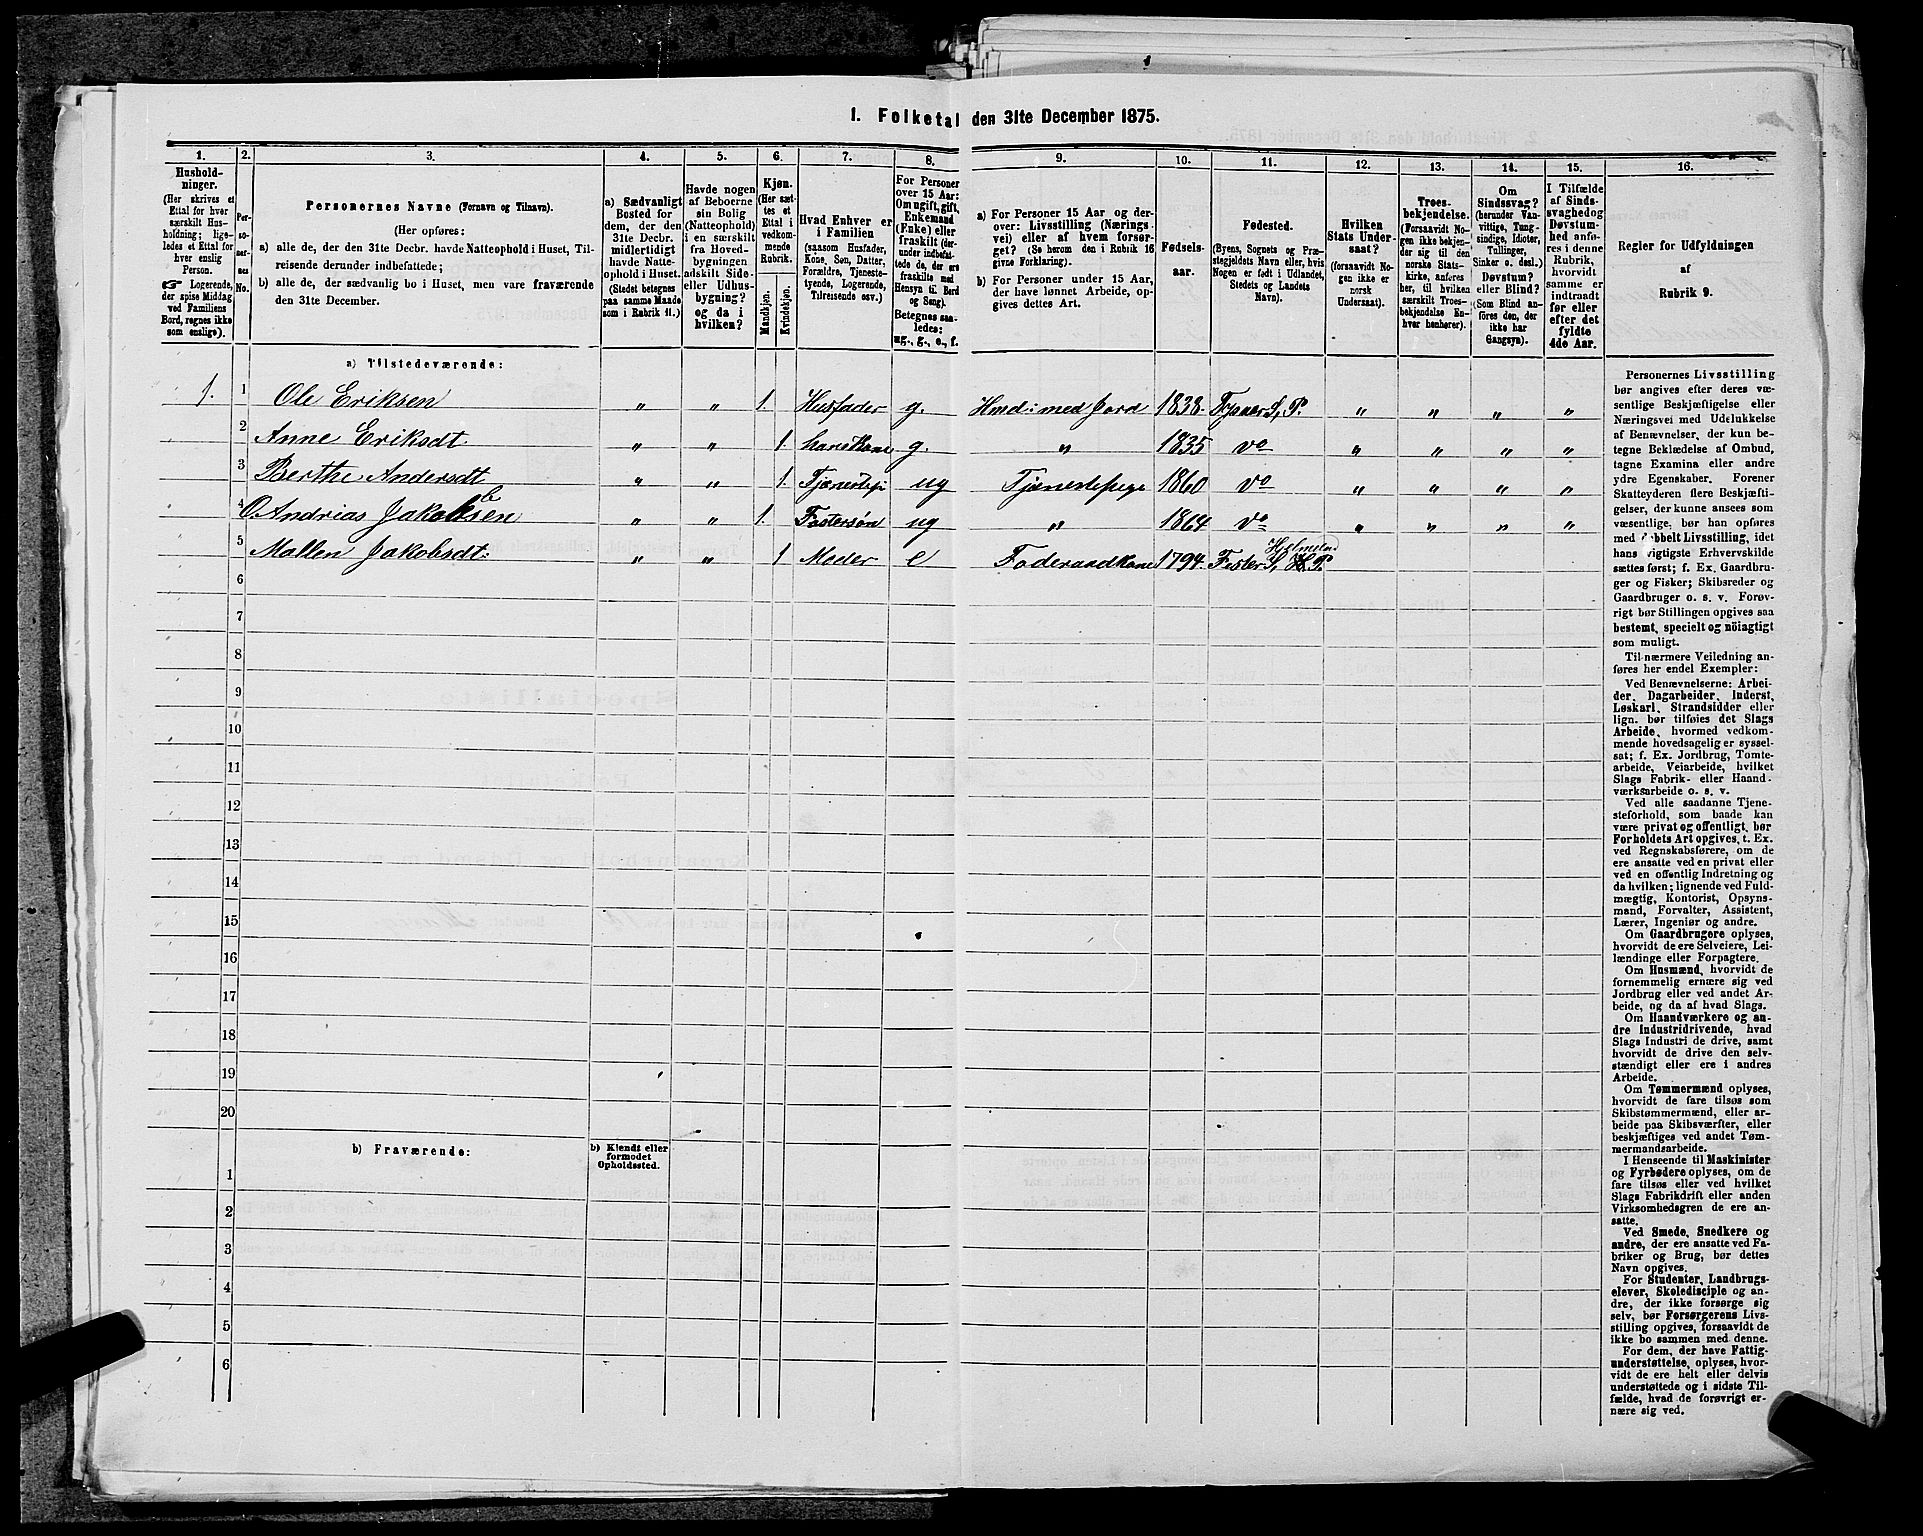 1. Folketal den 31te December 1875.
1. 2. 3. 4. 5. 6. 7. 8. 9. 10. 11. 12. 13. 14. 15. 16.
Hushold-
ninger.
(Her skrives et
Ettal for hver
særskilt Hus-
holdning; lige-
ledes et Ettal for
hver enslig
Person.
☞ Logerende,
der spise Middag
ved Familiens
Bord, regnes ikke
som enslige).
Per-
so-
ner-
nes
No.
Personernes Navne (Fornavn og Tilnavn).
(Her opføres:
a) alle de, der den 31te Decbr. havde Natteophold i Huset, Til-
reisende derunder indbefattede;
b) alle de, der sædvanlig bo i Huset, men vare fraværende
den 31te December.
a) Sædvanligt
Bosted for
dem, der den
31te Decbr.
midlertidigt
havde Natte-
ophold i Huset.
(Stedet betegnes
paa samme Maade
som i Rubrik 11.)
Havde nogen
af Beboerne
sin Bolig
(Natteophold)
i en særskilt
fra Hoved-
bygningen
adskilt Side-
eller Udhus-
bygning?
og da i
hvilken?
Kjøn.
(Her sæt-
tes et
Ettal i
vedkom-
mende
Rubrik.
Mandkjøn.
Kvindekjøn.
Hvad Enhver er
i Familien
(saasom Husfader,
Kone, Søn, Datter,
Forældre, Tjeneste-
tyende, Logerende,
Tilreisende osv.)
For Personer
over 15 Aar:
Om ugift, gift,
Enkemand
(Enke) eller
fraskilt (der-
under indbefat-
tede de, der ere
fraskilte med
Hensyn til Bord
og Seng).
Betegnes saa-
ledes:
ug., g., e., f.
a) For Personer 15 Aar og der-
over: Livsstilling (Nærings-
vei) eller af hvem forsør-
get? (Se herom den i Rubrik 16
givne Forklaring).
b) For Personer under 15 Aar,
der have lønnet Arbeide, op-
gives dettes Art.
Fødsels-
aar.
Fødested.
(Byens, Sognets og Præ-
stegjeldets Navn eller, hvis
Nogen er født i Udlandet,
Stedets og Landets
Navn).
Hvilken
Stats Under-
saat?
(forsaavidt No-
gen ikke er
norsk
Undersaat).
Troes-
bekjendelse.
(Forsaavidt No-
gen ikke bekjen-
der sig til den
norske Stats-
kirke, anføres
her, til hvilken
særskilt Troes-
bekjendelse En-
hver henhører).
Om
Sindssvag?
(herunder Van-
vittige, Tung-
sindige, Idioter,
Tullinger,
Sinker o. desl.)
Døvstum?
eller Blind?
(Som Blind an-
føres den, der
ikke har
Gangsyn).
I Tilfælde
af Sinds-
svaghedog
Døvstum-
hed anfø-
res i denne
Rubrik,
hvorvidt
samme er
indtraadt
før eller
efter det
fyldte
4de Aar.
Regler for Udfyldningen
af
Rubrik 9.
a) Tilstedeværende:
1. 1 Ole Eriksen " " 1. Husfader g. Hmd: med Jord 1838. Tysvær S, P. " " " "
2 Anne Eriksdt " " 1. hans Kone g. " 1835 do " " " "
3 Berthe Andersdt " " 1. ug Tjenestepige 1860 do " " " "
4 Andrias Jakobsen " " 1. Fostersøn ug " 1864 do " " " "
5 Mallen Jakobsdt. " " 1 Moder e Føderaadkone 1794. Fister S, P.
6
7
8
9
10
11
12
13
14
15
16
17
18
19
20
b) Fraværende:
b) Kjendt eller
formodet
Opholdssted.
1
2
3
4
5
6
Personernes Livsstilling
bør angives efter deres væ-
sentlige Beskjæftigelse eller
Næringsvei med Udelukkelse
af Benævnelser, der kun be-
tegne Beklædelse af Ombud,
tagne Examina eller andre
ydre Egenskaber. Forener
Skatteyderen flere Beskjæfti-
gelser, der kunne ansees som
væsentlige, bør han opføres
med dobbelt Livsstilling, idet
hans vigtigste Erhvervskilde
sættes først; f. Ex. Gaardbru-
ger og Fisker; Skibsreder og
Gaardbruger o. s. v. Forøv-
rigt bør Stillingen opgives saa
bestemt, specielt og nöiagtigt
som muligt.
Til nærmere Veiledning an-
føres her endel Exempler:
Ved Benævnelserne: Arbei-
der, Dagarbeider, Inderst,
Løskarl, Strandsidder eller
lign. bør tilføies det Slags
Arbeide, hvormed vedkom-
mende hovedsagelig er syssel-
sat; f. Ex. Jordbrug, Tomte-
arbeide, Veiarbeide, hvilket
Slags Fabrik- eller Haand-
værksarbeide o. s. v.
Ved alle saadanne Tjene-
steforhold, som baade kan
være privat og offentligt, bør
Forholdets Art opgives, t. Ex.
ved Regnskabsførere, om de
ere ansatte ved en privat eller
ved en offentlig Indretning og
da hvilken; lignende ved Fuld-
mægtig, Kontorist, Opsyns-
mand, Forvalter, Assistent,
Lærer, Ingeniør og andre.
Om Gaardbrugere oplyses,
hvorvidt de ere Selveiere, Lei-
lændinge eller Forpagtere.
Om Husmænd, hvorvidt de
fornemmelig ernære sig ved
Jordbrug eller ved andet Ar-
beide, og da af hvad Slags.
Om Haandværkere og an-
dre Industridrivende, hvad
Slags Industri de drive, samt
hvorvidt de drive den selv-
stændigt eller ere i andres
Arbeide.
Om Tømmermænd oplyses,
hvorvidt de fare tilsøs som
Skibstømmermænd, eller ar-
beide paa Skibsværfter, eller
beskjæftiges ved andet Tøm-
mermandsarbeide.
I Henseende til Maskinister
og Fyrbødere oplyses, om de
fare tilsøs eller ved hvilket
Slags Fabrikdrift eller anden
Virksomhedsgren de ere an-
satte.
Ved Smede, Snedkere og
andre, der ere ansatte ved Fa-
briker og Brug, bør dettes
Navn opgives.
For Studenter, Landbrugs-
elever, Skoledisciple og an-
dre, der ikke forsørge sig
selv, bør Forsørgerens Livs-
stilling opgives, forsaavidt de
ikke bo sammen med denne.
For dem, der have Fattig-
understøttelse, oplyses, hvor-
vidt de ere helt eller delvis
understøttede og i sidste Til-
fælde, hvad de forøvrigt er-
nære sig ved.